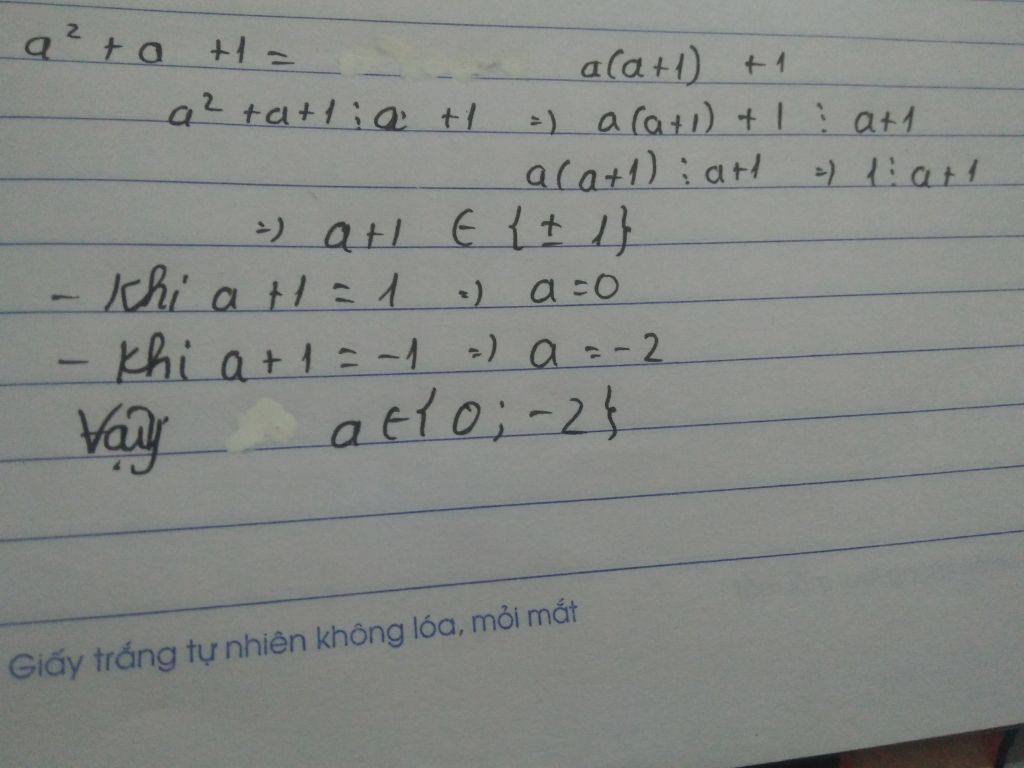 a² + a +1 = a(a+1) +1
a² +a+1 ⋮ a +1 =) a(a+1) + 1 ⋮ a+1
a(a+1) ⋮ a+1 =) 1 ⋮ a+1
=) a+1 ∈ {± 1}
- Khi a +1 = 1 =) a =0
- Khi a + 1 = -1 =) a = -2
Vậy a ∈ { 0 ; -2 }
Giấy trắng tự nhiên không lóa, mỏi mắt